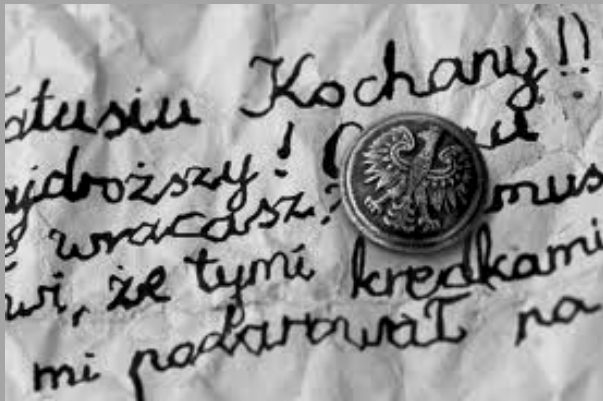 atusiu Kochany!!
ajdroższy!
wracasz? mus
wi, że tymi kredkami
mi podarował na